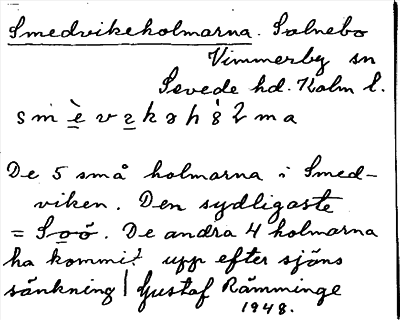 Smedvikeholmarna. Solnebo
Vimmerby sn
Sevede hd. Kalm l.
De 5 små holmarna i Smed-
viken. Den sydligaste
= Soö. De andra 4 holmarna
ha kommit upp efter sjöns
sänkning / Gustaf Rämminge
1948.